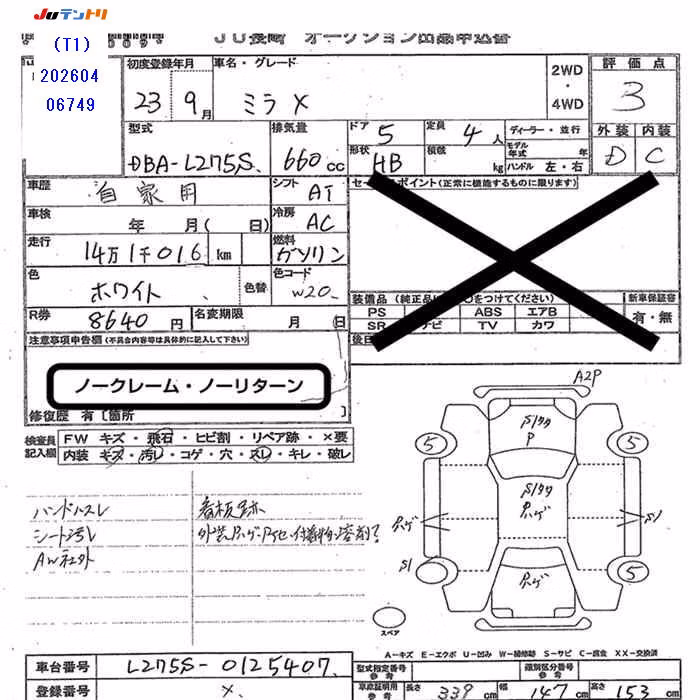 JUテントリ
JU長崎 オークション出品申込書
(T1)
202604
06749
初度登録年月
23年9月
車名・グレード
ミラ X
2WD
・
4WD
評価点
3
外装 内装
D C
型式
DBA-L275S
排気量
660cc
ドア 5
定員 4人
形状 HB
積載 kg
ディーラー・並行
モデル年式 年
ハンドル 左・右
車歴 自家用
シフト AT
セールスポイント(正常に機能するものに限ります)
車検 年 月( 日)
冷房 AC
走行 14万1千016 km
燃料 ガソリン
色 ホワイト
色替
色コード W20
装備品 (純正品に○をつけてください)
新車保証書
PS ABS エアB
有・無
SR ナビ TV カワ
R券 8640円
名変期限 月 日
後日
注意事項申告欄(不具合内容等は具体的に記入して下さい)
ノークレーム・ノーリターン
修復歴 有〔箇所 〕
検査員記入欄
FW キズ・飛石・ヒビ割・リペア跡・×要
内装 キズ・汚レ・コゲ・穴・スレ・キレ・破レ
ハンドルスレ
シート汚レ
AW社外
看板跡
A2P
5
5
P
ハゲ
ハゲ
S1
S1
ハゲ
5
スペア
A-キズ E-エクボ U-凹み W-補修跡 S-サビ C-腐食 XX-交換済
車台番号 L275S-0125407
登録番号 X
型式指定番号 参考
類別区分番号 参考
車庫証明用 参考
長さ 339cm
幅 147cm
高さ 153cm